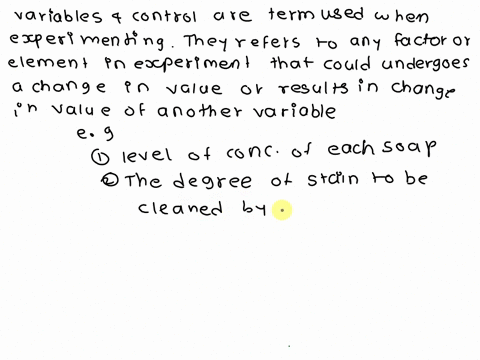 variables & control are term used when
experimenting. They refers to any factor or
element in experiment that could undergoes
a change in value or results in change
in value of another variable
e.g
① level of conc. of each soap
② The degree of stain to be
cleaned by